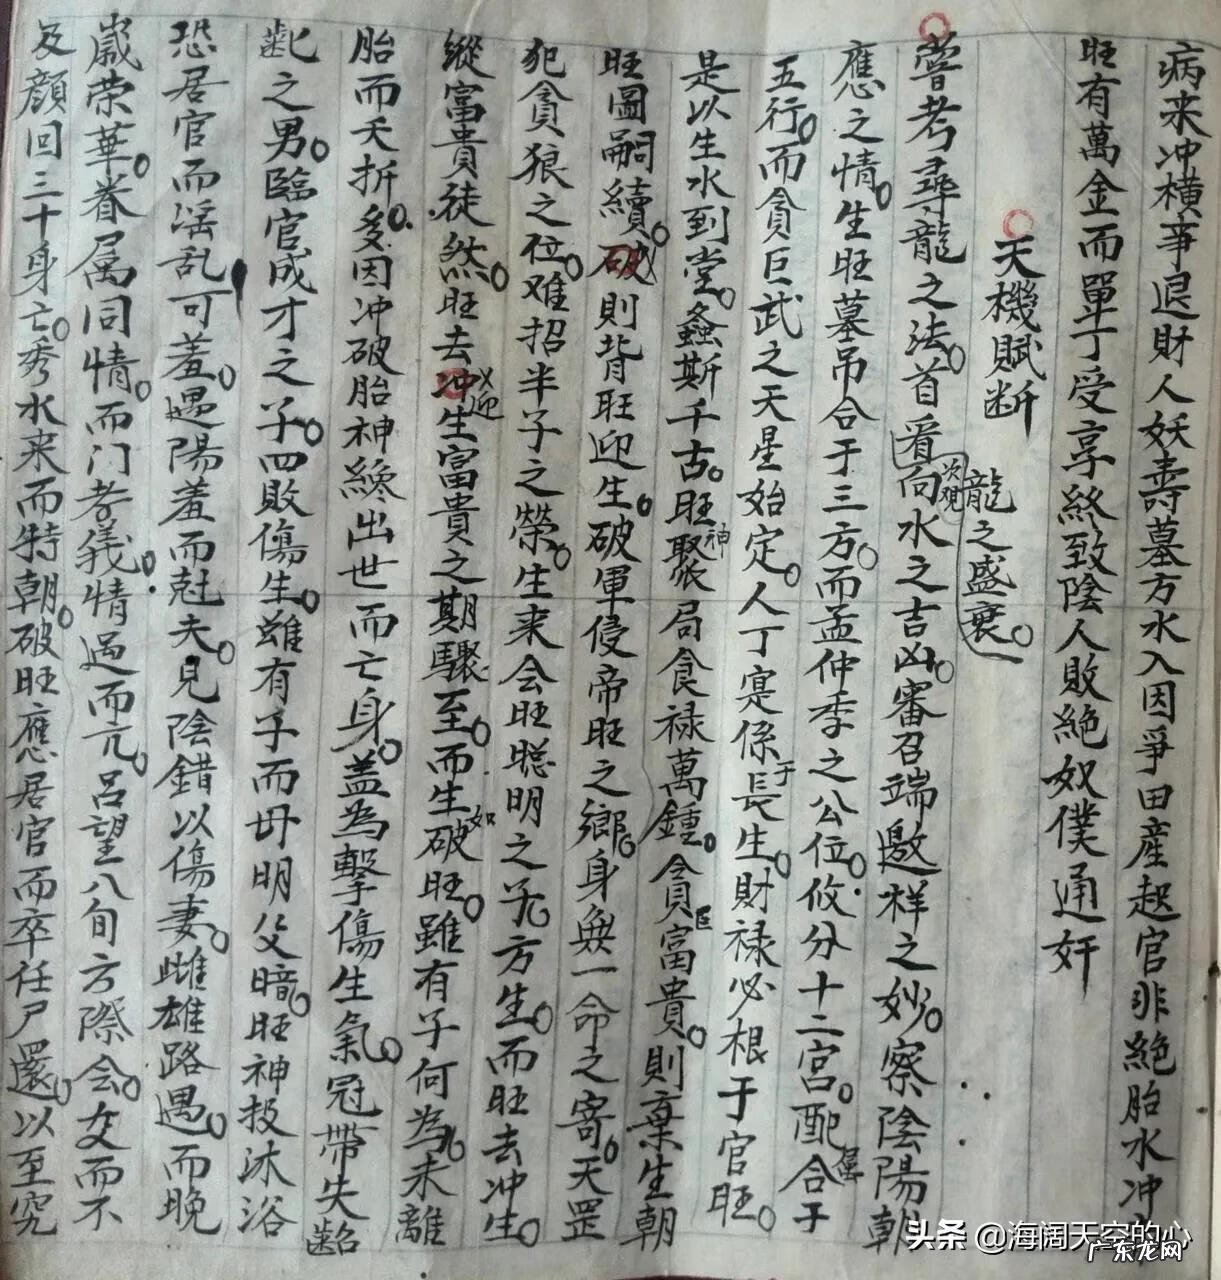 病来冲横爭退財人妖壽墓方水入因爭田産起官非絶胎水冲
旺有萬金而單丁受享終致陰人敗絶奴僕通奸
天機賦断
龍之盛衰。
嘗考尋龍之法。首看向水之吉凶。審召端邀祥之妙。察陰陽朝
次观
應之情。生旺墓吊合于三方。而孟仲季之公位。攸分十二宫。配合于
五行。而貪巨武之天星始定。人丁寔係長生。財禄必根于官旺。
于
是以生水到堂。螽斯千古。旺聚局食禄萬鍾。貪富貴。則棄生朝
神
巨
旺圖嗣續。破則背旺迎生。破軍侵帝旺之鄉。身無一命之寄。天罡
犯貪狼之位。难招半子之榮。生来会旺聪明之子方生。而旺去冲生。
縱富貴徒然。旺去冲生富貴之期驟至。而生破旺。雖有子何為。未離
迎
如
胎而夭折多。因冲破胎神纔出世而亡身。盖為擊傷生氣。冠帶失
齠
齔之男。臨官成才之子。四敗傷生。雖有子而毋明父暗。旺神投沐浴
恐居官而滛乱可羞。遇陽羞而尅夫。見陰錯以傷妻。雌雄路遇。而晚
歲荣華。眷属同情。而门孝義。情過而亢。吕望八旬方際会。交而不
及顔回三十身亡。秀水来而特朝。破旺應居官而卒任尸還。以至究
头条 @海阔天空的心
广东龙网